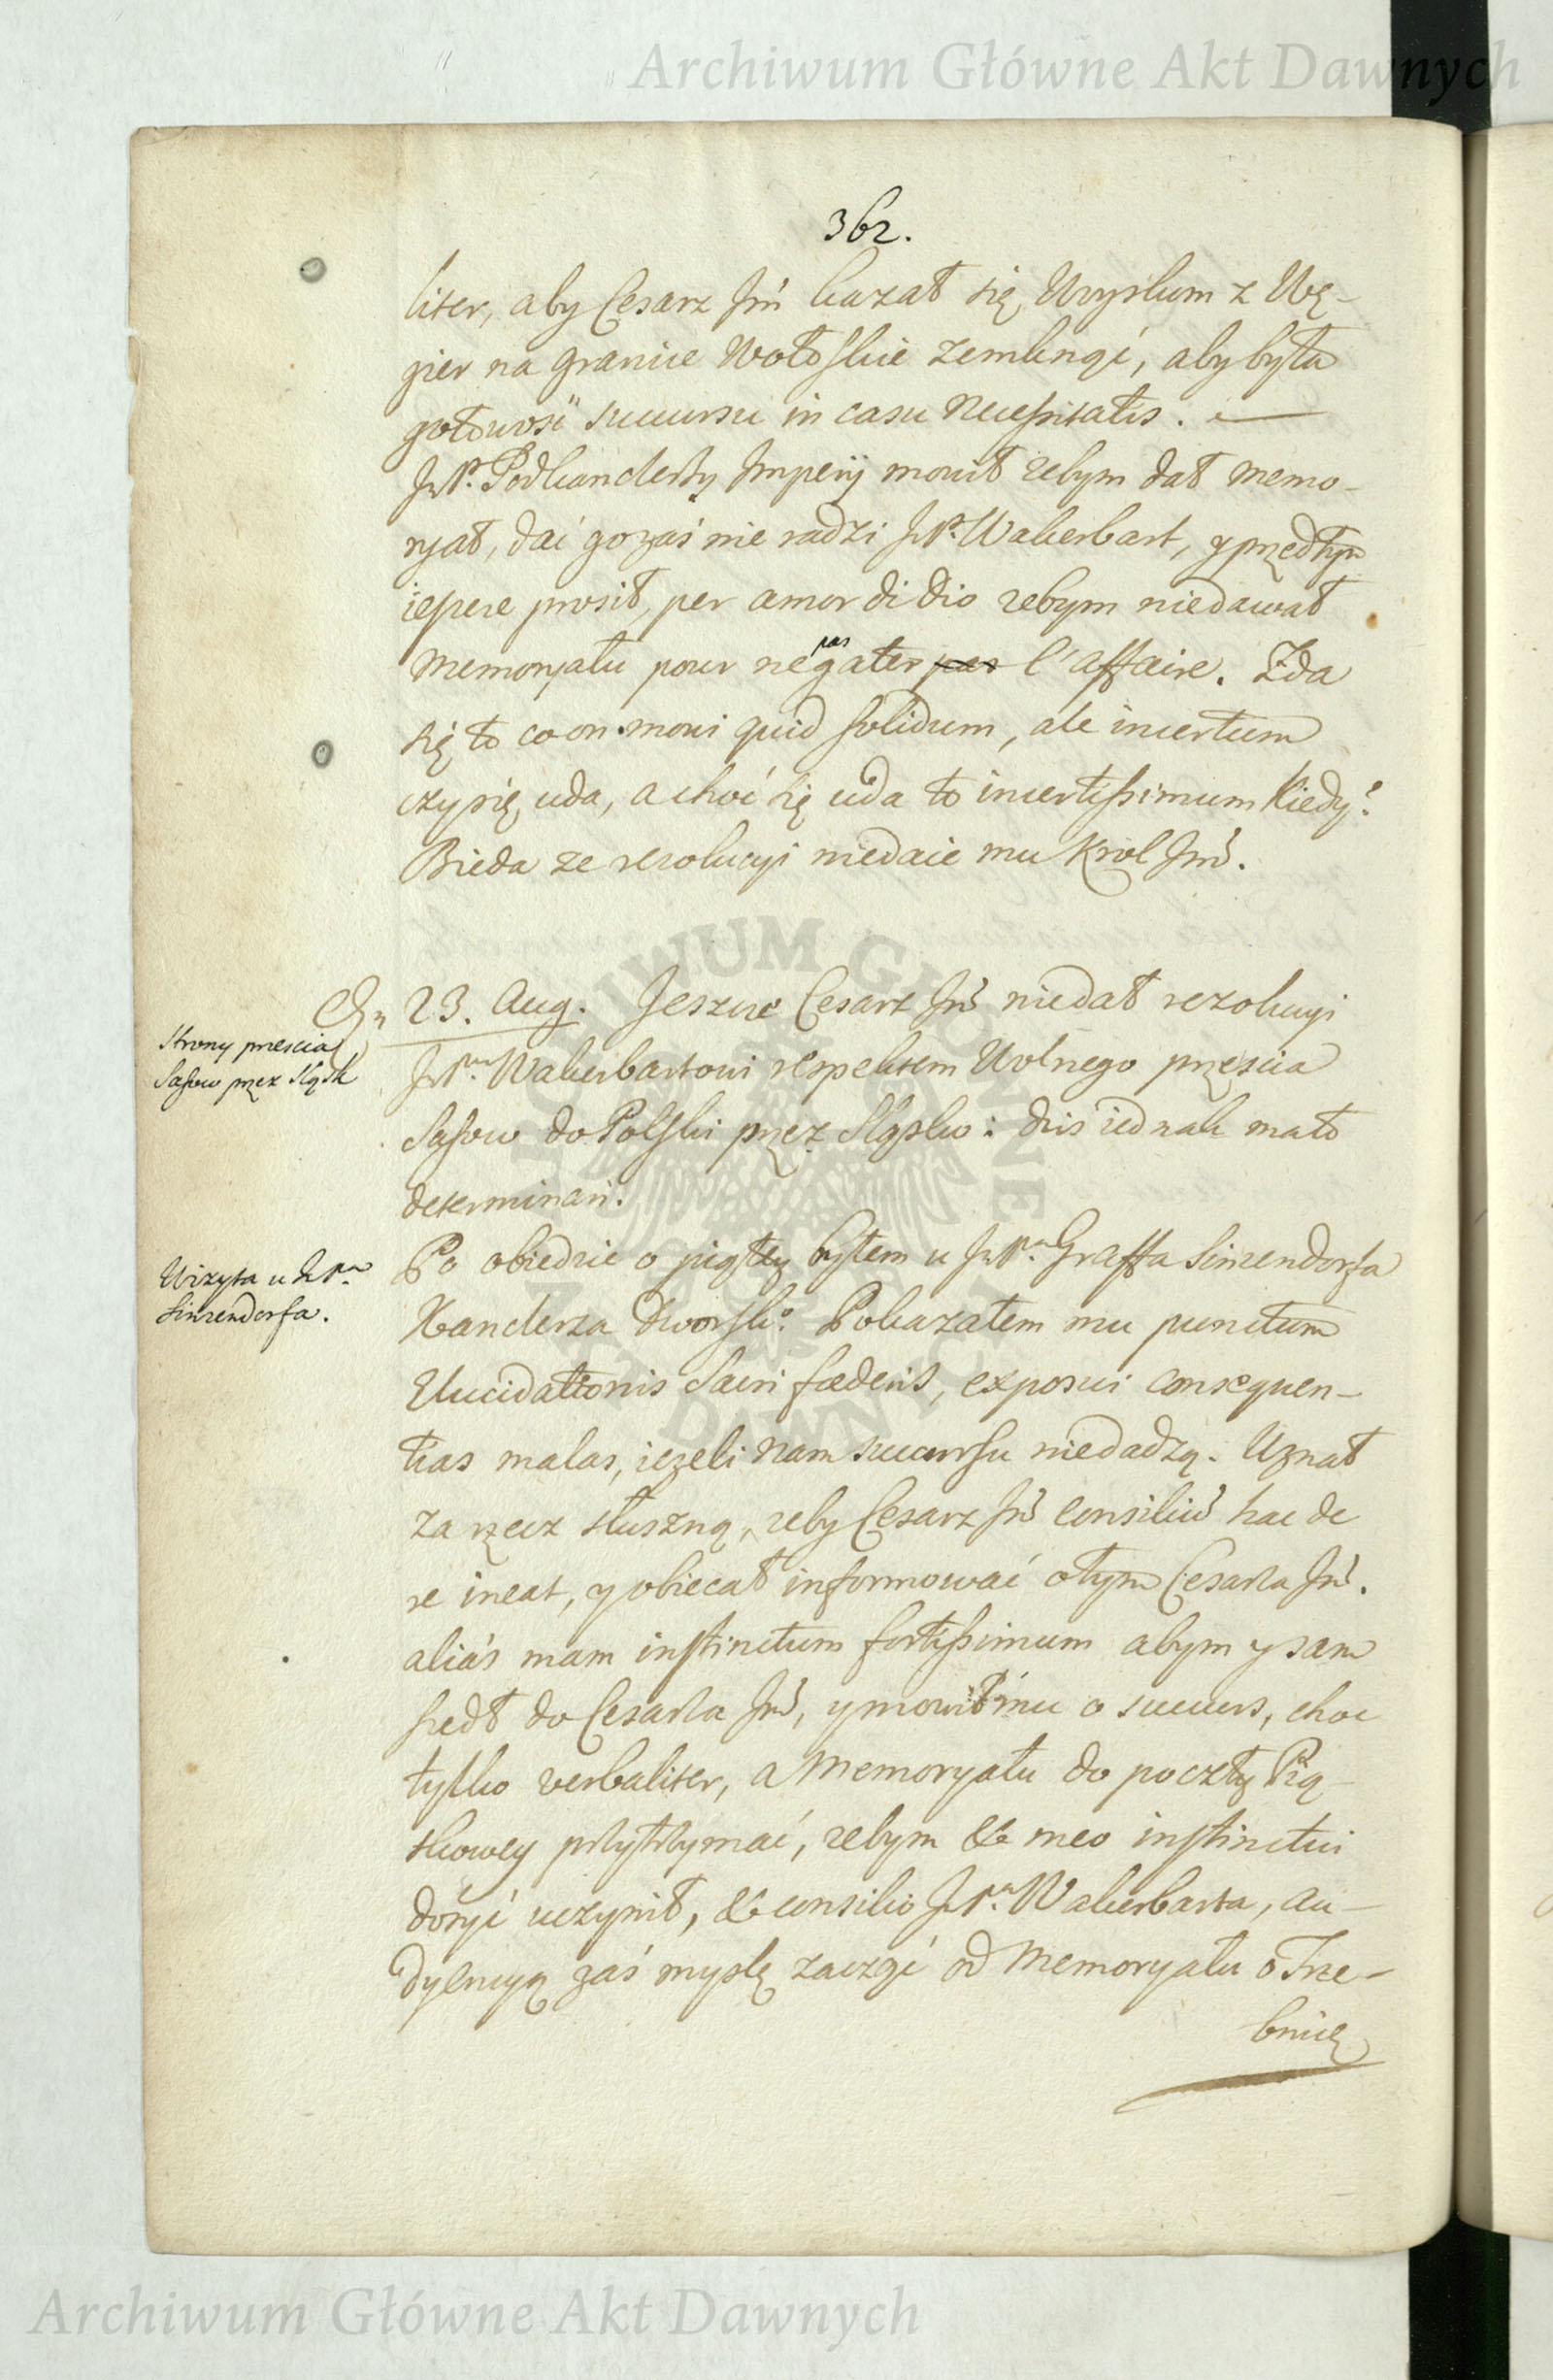 Archiwum Główne Akt Dawnych
362.
liter, aby Cesarz Jmć kazał się Woyskum z Wę-
gier na granice Wołoskie zemknąć, aby była
gotowość succursu in casu necessitatis. —
JP. Podkanclerzy Imperij mowił zebym dał memo-
ryał, dać go zaś nie radzi JP. Wakerbart, y przedtym
ieszcze prosił, per amor di dio zebym niedawał
Memoryału pour ne pas gater pas l'affaire. Zda
się to co on mowi quid solidum, ale incertum
czy się uda, a choć się uda to incertissimum kiedy?
Bieda ze rezolucyi niedaie mu Krol Jmć.
23. Aug. Jeszcze Cesarz Jmć niedał rezolucyi
Strony przescia
Sasow przez Sląsk
JPnu Wakerbartowi respektem Wolnego przęscia
Sasow do Polski przez Sląsko: dzis iednak miało
determinari.
Wizyta u JPna
Sinzendorfa.
Po obiedzie o piątey byłem u JPna Graffa Sinzendorfa
Kanclerza Dworskiº. Pokazałem mu punctum
Elucidationis Sacri foederis, exposui consequen-
tias malas, iezeli nam succursu niedadzą. Uznał
za rzecz słuszną, zeby Cesarz Jmć consiliū hac de
re ineat, y obiecał informować o tym Cesarza Jmć.
aliás mam instinctum fortissimum abym y sam
szedł do Cesarza Jmć, y mowił mu o succurs, choc
tylko verbaliter, a Memoryału do poczty Pią-
tkowey przytrzymać, zebym & meo instinctui
dosyć uczynił, & consilio JPna Wakerbarta, Au-
dyencyą zaś myslę zacząć od Memoryału o Trze-
bnicę
Archiwum Główne Akt Dawnych